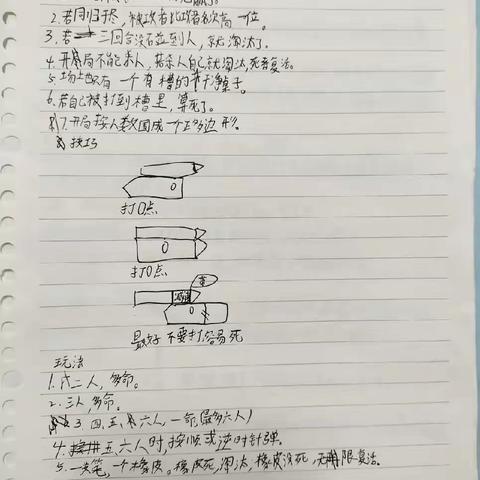 2.若同归于尽,被攻者比攻者名次高一位。
3.若三回合没石並到人,就淘汰了。
4.开局不能杀人,若杀人自己就淘汰,死者复活。
5.场上必有一个有槽的干净桌子。
6.若自己被打到槽里,算死了。
7.开局按人数围成一个正多边形。
技巧
0
打0点
0
打0点
0
最好不要打,容易死
玩法
1.二人,多命。
2.三人,多命。
3.四、五、六人,一命(最多六人)
4.五六人时,按顺或逆时针弹。
5.一支笔,一个橡皮。橡皮死,淘汰,橡皮没死,无限复活。